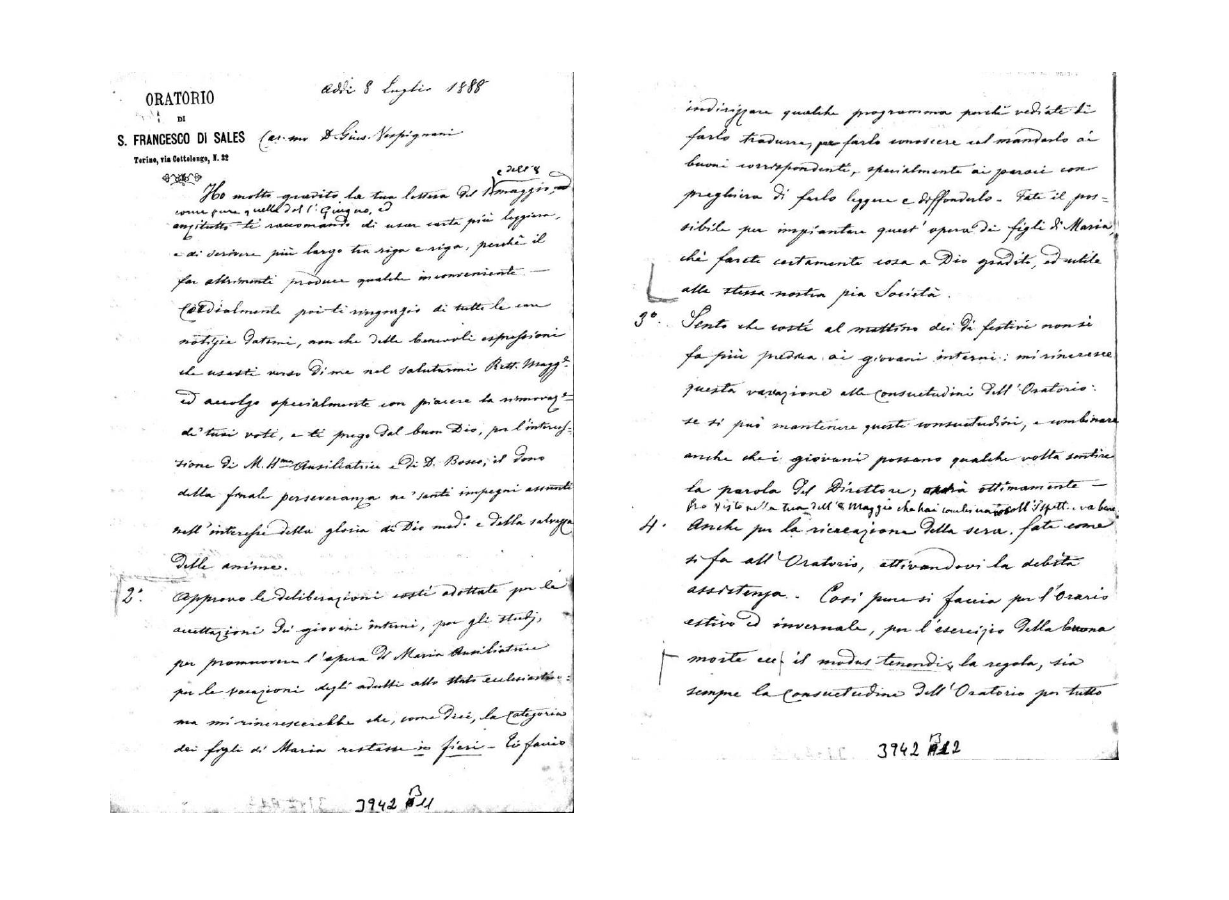 Addì 8 Luglio 1888
ORATORIO
DI
S. FRANCESCO DI SALES
Torino, via Cottolengo, N. 32
Car.mo D. Gius. Vespignani
e dell'8
Ho molto gradito la tua lettera del maggio,
come pure quella del 1° Giugno, ed
anzitutto ti raccomando di usar carta più leggiera,
e di scrivere più largo tra riga e riga, perchè il
far altrimenti produce qualche inconveniente —
Cordialmente poi ti ringrazio di tutte le care
notizie datemi, non che delle benevoli espressioni
che usasti verso di me nel salutarmi Rett. Magg.e
ed accolgo specialmente con piacere la rinnovaz.e
de' tuoi voti, e ti prego dal buon Dio, per l'interces-
sione di M. Ausiliatrice e di D. Bosco, il dono
della finale perseveranza ne' santi impegni assunti
nell'interesse della gloria di Dio med.o e della salvezza
delle anime.
2°. Approvo le deliberazioni costì adottate per le
accettazioni dei giovani interni, per gli studj,
per promuovere l'opera di Maria Ausiliatrice
per le vocazioni degli adulti allo stato ecclesiastico:
ma mi rincrescerebbe che, come dici, la categoria
dei figli di Maria restasse in fieri – Ti faccio
3942 B 11
indirizzare qualche programma perchè vediate di
farlo tradurre, farlo conoscere col mandarlo ai
buoni corrispondenti, specialmente ai parroci con
preghiera di farlo leggere e diffonderlo – Fate il pos=
sibile per impiantare quest'opera di figli di Maria,
chè farete certamente cosa a Dio gradita, ed utile
alla stessa nostra pia Società.
3°. Sento che costì al mattino dei dì festivi non si
fa più predica ai giovani interni: mi rincresce
questa variazione alle consuetudini dell'Oratorio:
se si può mantenere queste consuetudini, e combinare
anche che i giovani possano qualche volta sentire
la parola del Direttore, andrà ottimamente –
Ho visto nella tua dell'8 Maggio che hai combinato coll'Ispett. va bene
4. Anche per la ricreazione della sera fate come
si fa all'Oratorio, attivandovi la debita
assistenza. Così pure si faccia per l'Orario
estivo ed invernale, per l'esercizio della buona
morte ecc il modus tenendi, la regola, sia
sempre la Consuetudine dell'Oratorio per tutto
3942 B 12